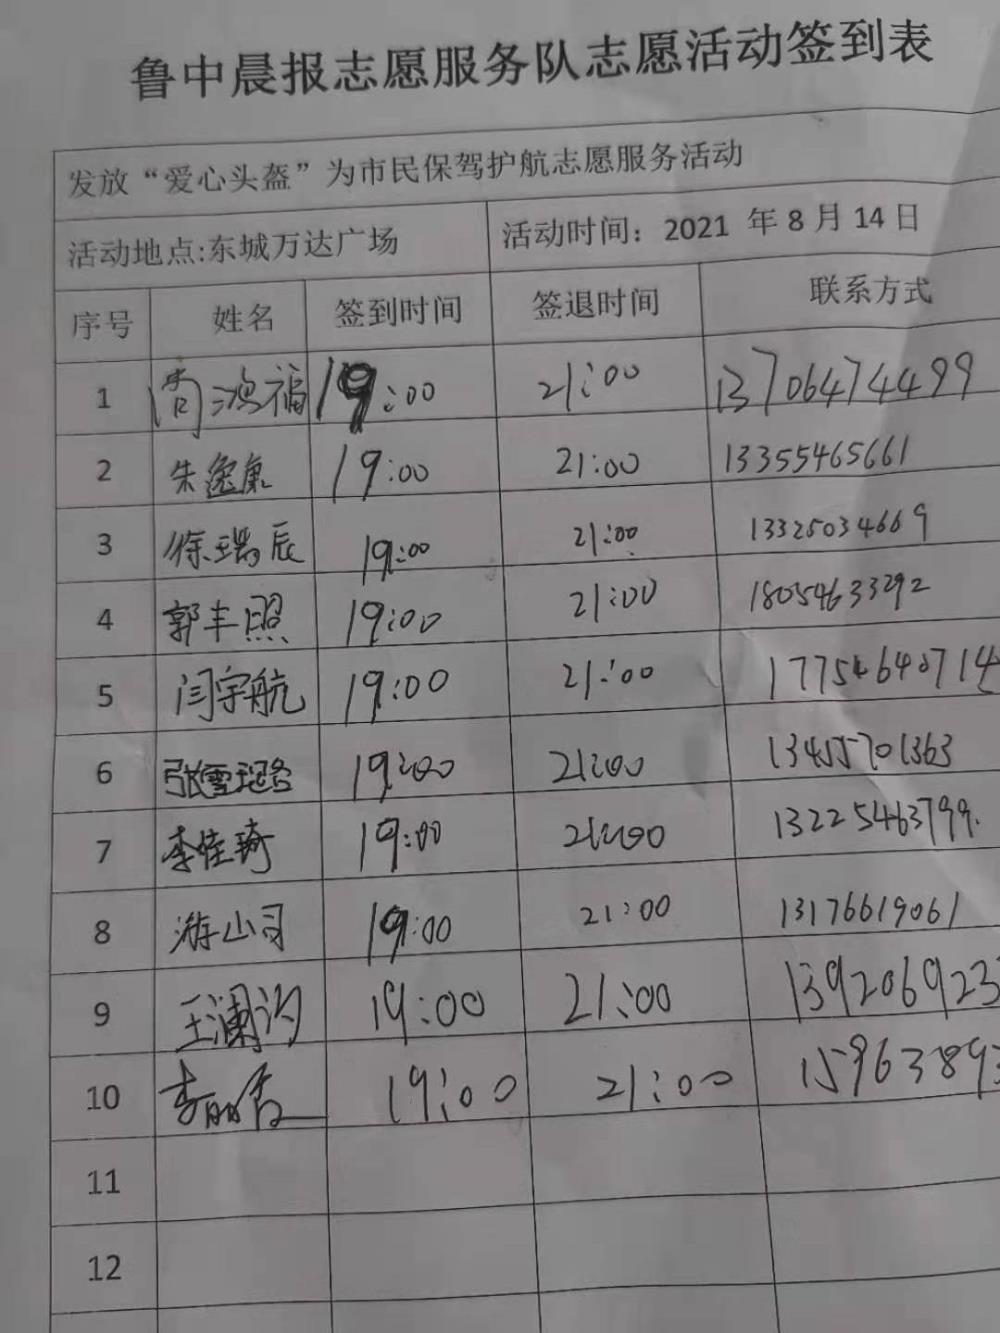 鲁中晨报志愿服务队志愿活动签到表
发放“爱心头盔”为市民保驾护航志愿服务活动
活动地点:东城万达广场 活动时间：2021 年 8 月 14 日
序号 姓名 签到时间 签退时间 联系方式
1 尚鸿福 19:00 21:00 13706474499
2 朱逸康 19:00 21:00 13355465661
3 徐瑞辰 19:00 21:00 13325034669
4 郭丰照 19:00 21:00 18054633292
5 闫宇航 19:00 21:00 17754640714
6 张雪 19:00 21:00 13455701363
7 李佳琦 19:00 21:00 13225463799.
8 游山司 19:00 21:00 13176619061
9 王澜 19:00 21:00 139206923
10 李丽香 19:00 21:00 15963893
11
12